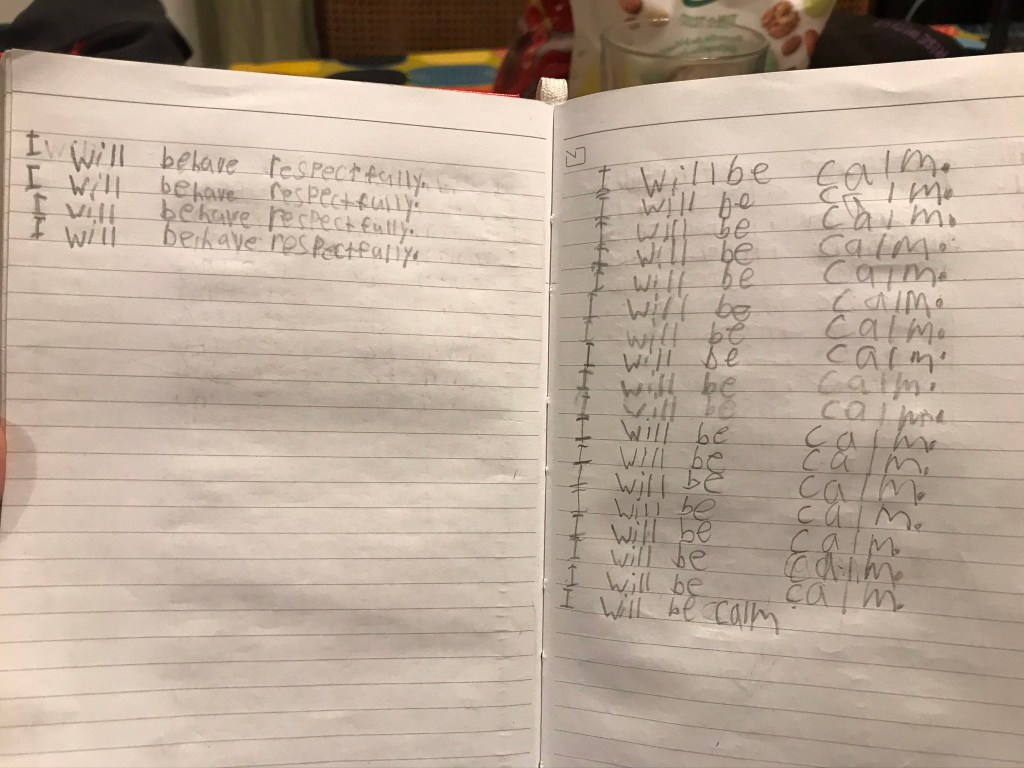 I will behave respectfully.
I will behave respectfully.
I will behave respectfully.
I will behave respectfully.
I will be calm.
I will be calm.
I will be calm.
I will be calm.
I will be calm.
I will be calm.
I will be calm.
I will be calm.
I will be calm.
I will be calm.
I will be calm.
I will be calm.
I will be calm.
I will be calm.
I will be calm.
I will be calm.
I will be calm.
I will be calm